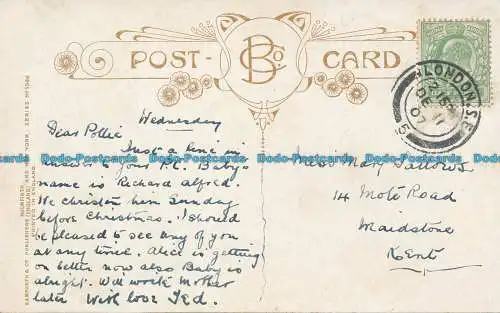 POST- B Co CARD
LONDON. S.E.
DE 11
07
5
Wednesday
Dear Pollie
Just a line in
answer to your P.C. Baby's
name is Richard Alfred.
We christen him Sunday
before Christmas. I should
be pleased to see any of you
at any time. Alice is getting
on better now also Baby is
alright. Will write Mother
later With love Ted.
Miss Mary Fallows
14 Mote Road
Maidstone
Kent
Dodo-Postcards Dodo-Postcards Dodo-Postcards Dodo-Postcards Dodo-Postcards
BAMFORTH & CO. PUBLISHERS
PRINTED IN ENGLAND